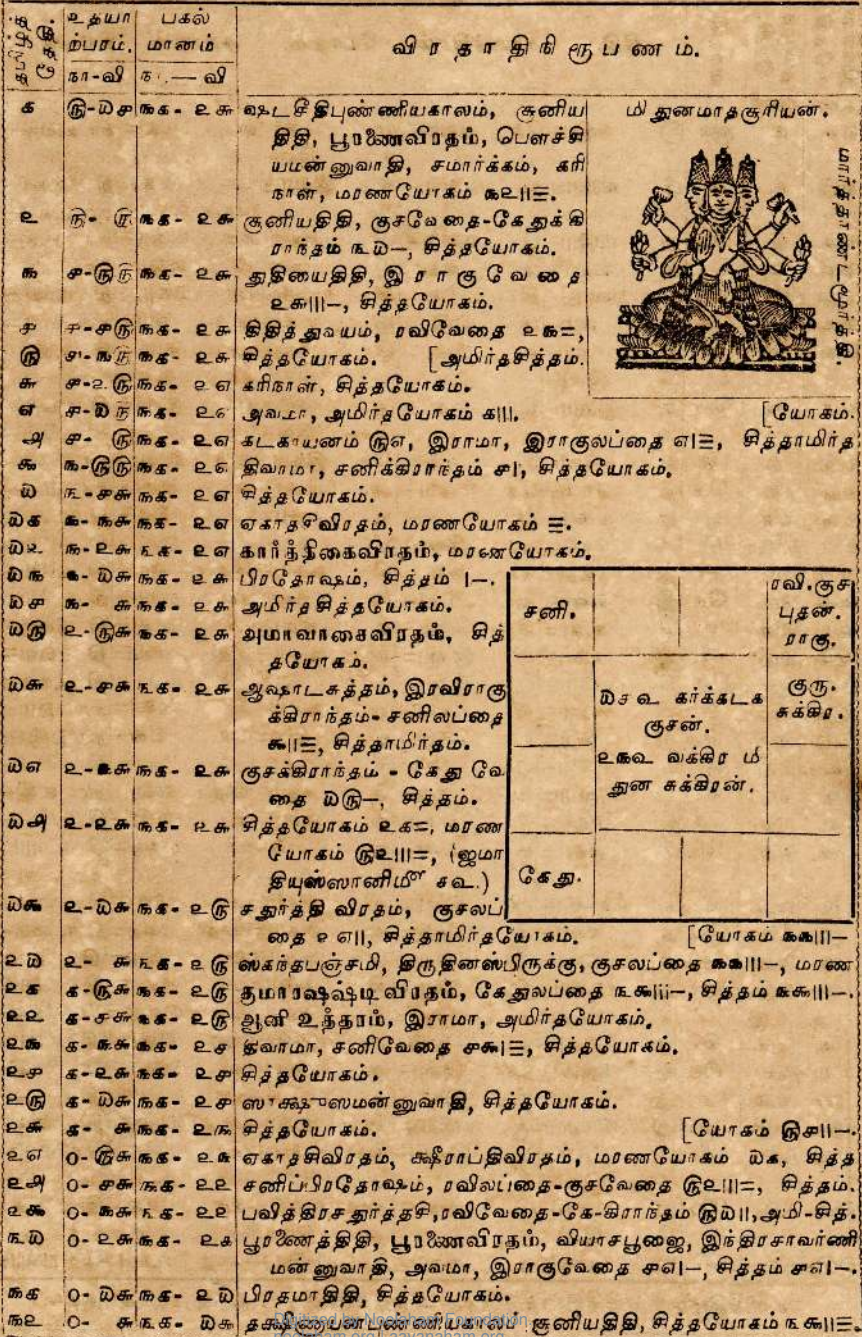 தமிழ்த் தேதி.
உதயா ற்பரம்.
நா-வி
பகல் மானம்
நா.—வி
விரதாதிநிரூபணம்.
௧ ௫-௰௪ ௩௧-௨௬ ஷடசீதிபுண்ணியகாலம், சூனிய
திதி, பூரணைவிரதம், பௌச்சி
யமன்னுவாதி, சமார்க்கம், கரி
நாள், மரணயோகம்
மிதுனமாதசூரியன்.
மார்த்தாண்டமூர்த்தி.
௨ ௩௧-௨௬ சூனியதிதி, குசவேதை-கேதுக்கி
ராந்தம் ௩௰–, சித்தயோகம்.
௩ ௩௧-௨௬ துதியைதிதி, இராகுவேதை
௨௬|||–, சித்தயோகம்.
௪ ௪-௪௫ ௩௧-௨௬ திதித்துவயம், ரவிவேதை ௨௩=,
௫ ௩௧-௨௬ சித்தயோகம். [அமிர்தசித்தம்.
௬ ௪-௨௫ ௩௧-௨௭ கரிநாள், சித்தயோகம்.
௭ ௩௧-௨௭ அவமா, அமிர்தயோகம் ௧|||. [யோகம்.
௮ ௪-௫ ௩௧-௨௭ கடகாயனம் ௫௭, இராமா, இராகுலப்தை ௭|☰, சித்தாமிர்த
௯ ௩-௫௫ ௩௧-௨௭ திவாமா, சனிக்கிராந்தம் ௪|, சித்தயோகம்.
௰ ௩-௪௬ ௩௧-௨௭ சித்தயோகம்.
௰௧ ௩-௩௬ ௩௧-௨௭ ஏகாதசிவிரதம், மரணயோகம் ☰.
௰௨ ௩-௨௬ ௩௧-௨௭ கார்த்திகைவிரதம், மரணயோகம்.
௰௩ ௩-௰௬ ௩௧-௨௬ பிரதோஷம், சித்தம் |–.
௰௪ ௩-௬ ௩௧-௨௬ அமிர்தசித்தயோகம்.
௰௫ ௨-௫௬ ௩௧-௨௬ அமாவாசைவிரதம், சித்
தயோகம்.
௰௬ ௨-௪௬ ௩௧-௨௬ ஆஷாடசுத்தம், இரவிராகு
க்கிராந்தம்-சனிலப்தை
௯||☰, சித்தாமிர்தம்.
௰௭ ௨-௩௬ ௩௧-௨௬ குசக்கிராந்தம் - கேது வே
தை ௰௫–, சித்தம்.
௰௮ ௨-௨௬ ௩௧-௨௬ சித்தயோகம் ௨௧=, மரண
யோகம் ௫௨|||=, (ஜமா
தியுஸ்ஸானி௴ ௪௳.)
சனி.
ரவி.குச
புதன்.
ராகு.
௰௪௳ கர்க்கடக
குசன்.
௨௩௳ வக்கிர மி
துன சுக்கிரன்.
குரு.
சுக்கிர.
கேது.
௰௯ ௨-௰௬ ௩௧-௨௫ சதுர்த்தி விரதம், குசலப்
தை ௨௭||, சித்தாமிர்தயோகம். [யோகம் ௩௯|||–
௨௰ ௨-௬ ௩௧-௨௫ ஸ்கந்தபஞ்சமி, திருதினஸ்பிருக்கு, குசலப்தை ௩௯|||–, மரண
௨௧ ௧-௫௬ ௩௧-௨௫ குமாரஷஷ்டி விரதம், கேதுலப்தை ௩௯|||–, சித்தம் ௩௯|||–.
௨௨ ௧-௪௬ ௩௧-௨௫ ஆனி உத்தரம், இராமா, அமிர்தயோகம்.
௨௩ ௧-௩௬ ௩௧-௨௪ திவாமா, சனிவேதை ௪௯|☰, சித்தயோகம்.
௨௪ ௧-௨௬ ௩௧-௨௪ சித்தயோகம்.
௨௫ ௧-௰௬ ௩௧-௨௪ சித்தயோகம்.
௨௬ ௧-௬ ௩௧-௨௩ சித்தயோகம். [யோகம் ௫௪||–.
௨௭ ௦-௫௬ ௩௧-௨௩ ஏகாதசிவிரதம், க்ஷீராப்திவிரதம், மரணயோகம் ௰௧, சித்த
௨௮ ௦-௪௬ ௩௧-௨௨ சனிப்பிரதோஷம், ரவிலப்தை-குசவேதை ௫௨|||=, சித்தம்.
௨௯ ௦-௩௬ ௩௧-௨௨ பவித்திரசதுர்த்தசி,ரவிவேதை-கே-கிராந்தம் ௫௰||,அமி-சித்.
௩௰ ௦-௨௬ ௩௧-௨௧ பூரணைத்திதி, பூரணைவிரதம், வியாசபூஜை, இந்திரசாவர்ணி
மன்னுவாதி, அவமா, இராகுவேதை ௪௭|–, சித்தம் ௪௭|–.
௩௧ ௦-௰௬ ௩௧-௨௰ பிரதமாதிதி, சித்தயோகம்.
௩௨ ௦-௬ ௩௧-௰௯ தக்ஷிணாயனபுண்ணியகாலம் சூனியதிதி, சித்தயோகம் ௩௯||☰.
Digitized by Noolaham Foundation
noolaham.org | aavanaham.org